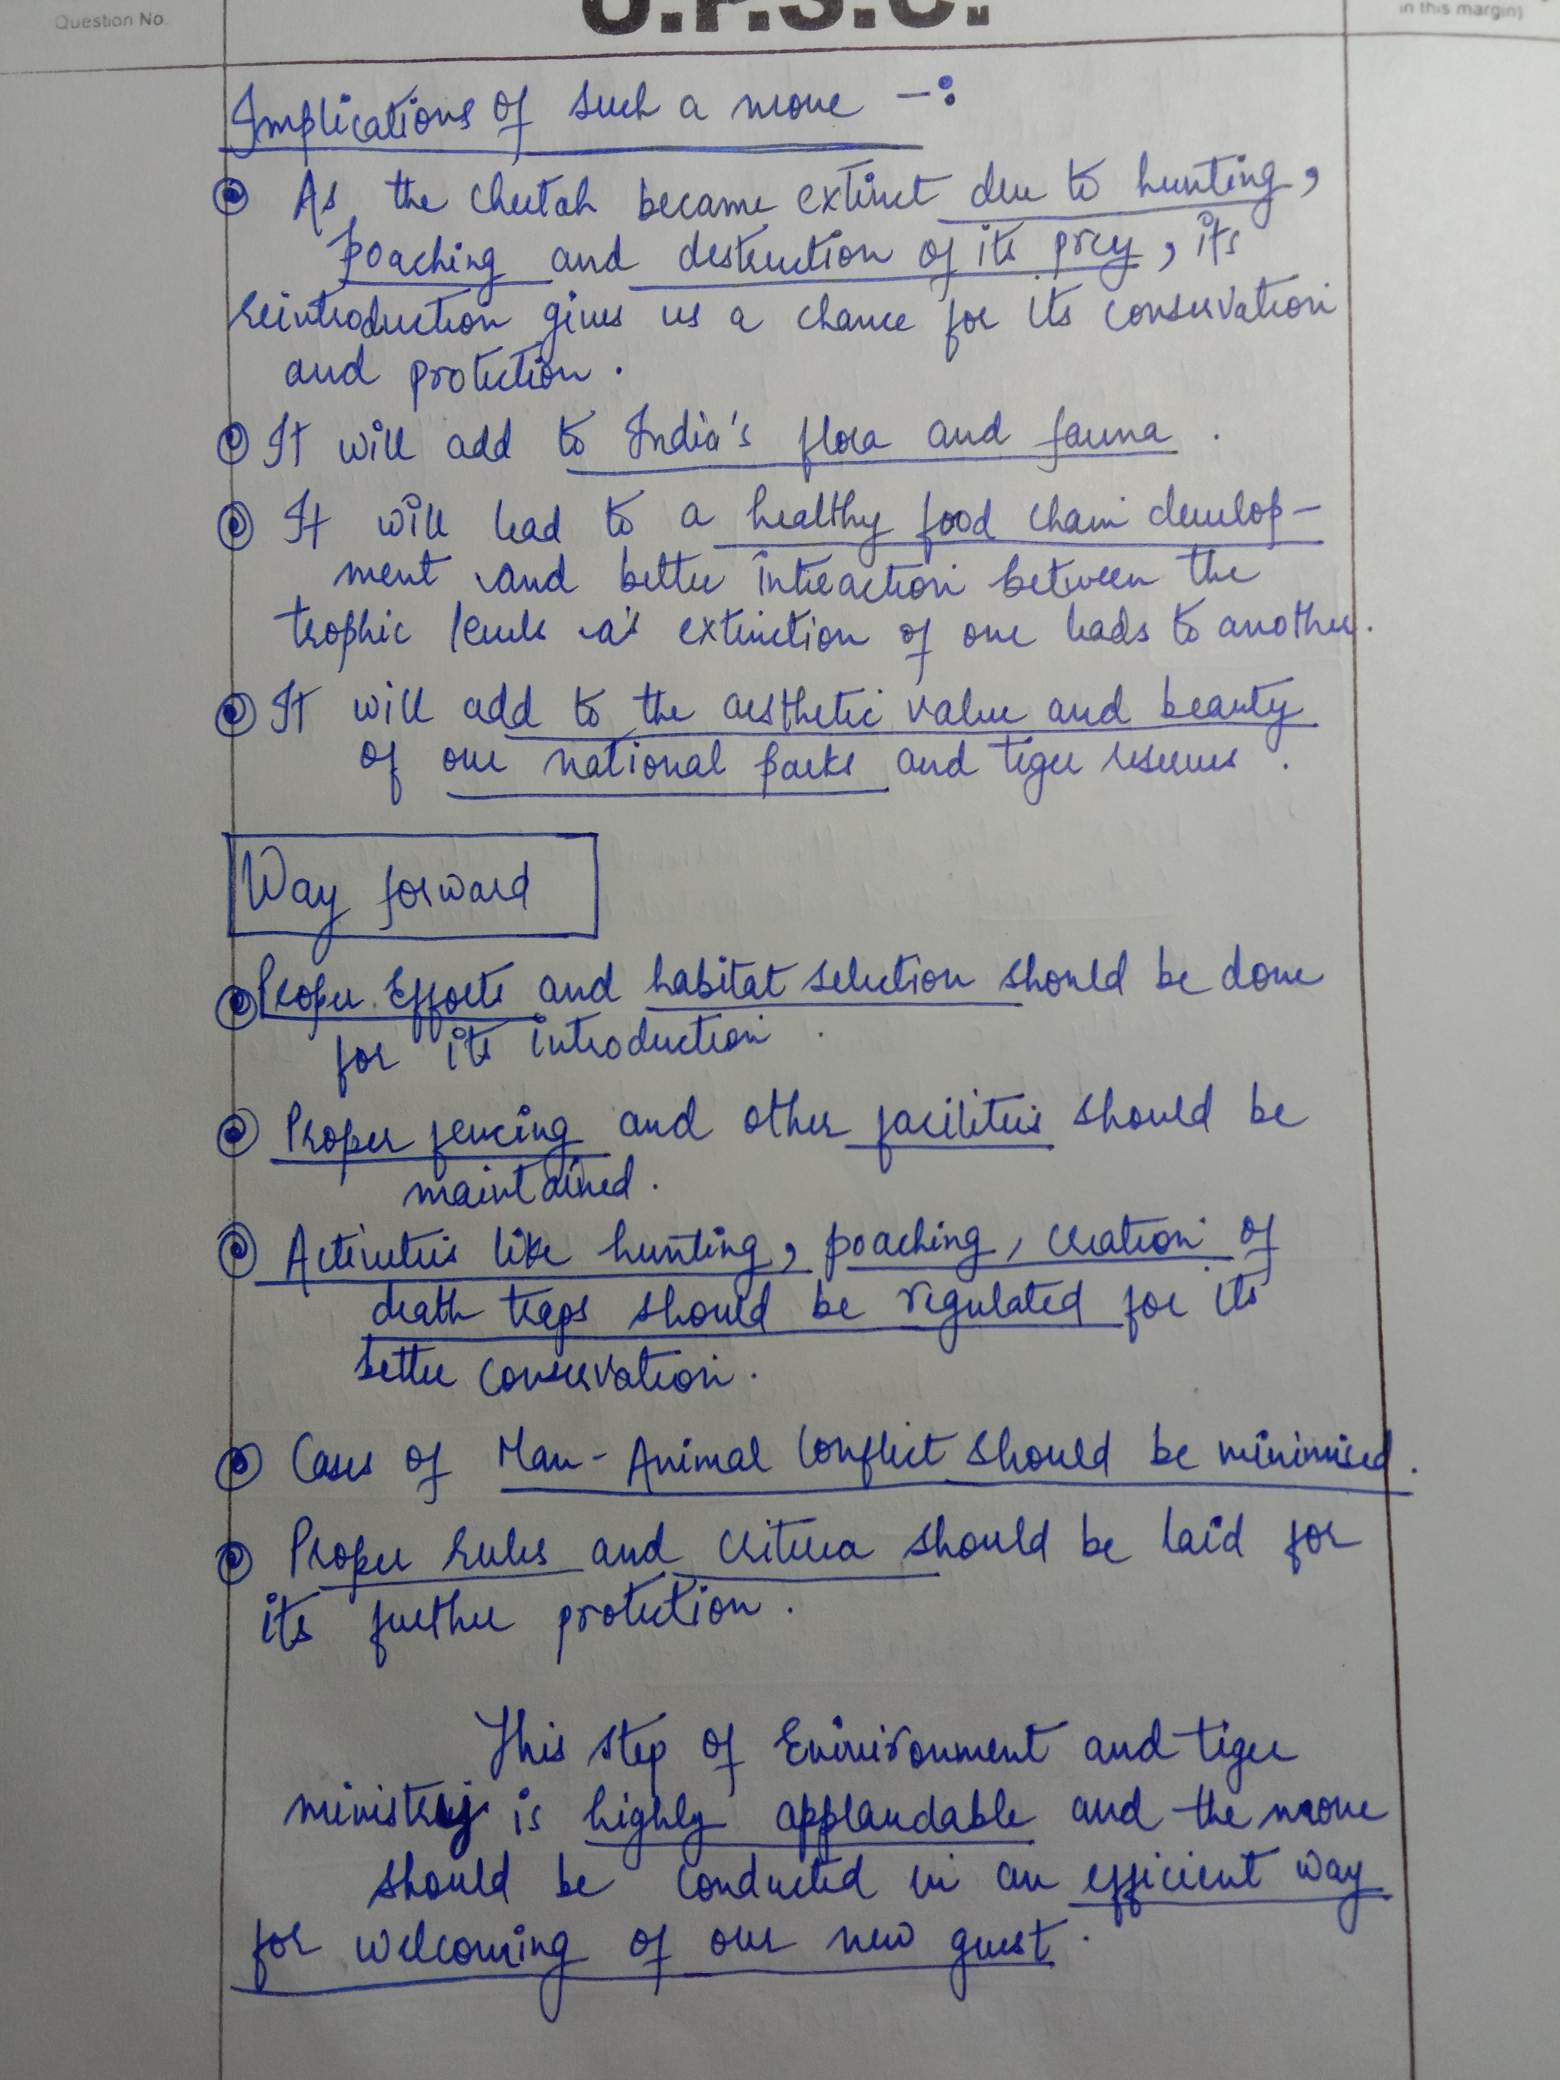 Question No.
U.P.S.C.
in this margin)
Implications of such a move -:
As the cheetah became extinct due to hunting,
poaching and destruction of its prey, its
reintroduction gives us a chance for its conservation
and protection.
It will add to India's flora and fauna.
It will lead to a healthy food chain develop-
ment and better interaction between the
trophic levels as extinction of one leads to another.
It will add to the aesthetic value and beauty
of our national parks and tiger reserves.
Way forward
Proper Efforts and habitat selection should be done
for its introduction.
Proper fencing and other facilities should be
maintained.
Activities like hunting, poaching, creation of
death traps should be regulated for its
better conservation.
Cases of Man-Animal Conflict should be minimised.
Proper rules and criteria should be laid for
its further protection.
This step of Environment and tiger
ministry is highly applaudable and the move
should be conducted in an efficient way
for welcoming of our new guest.